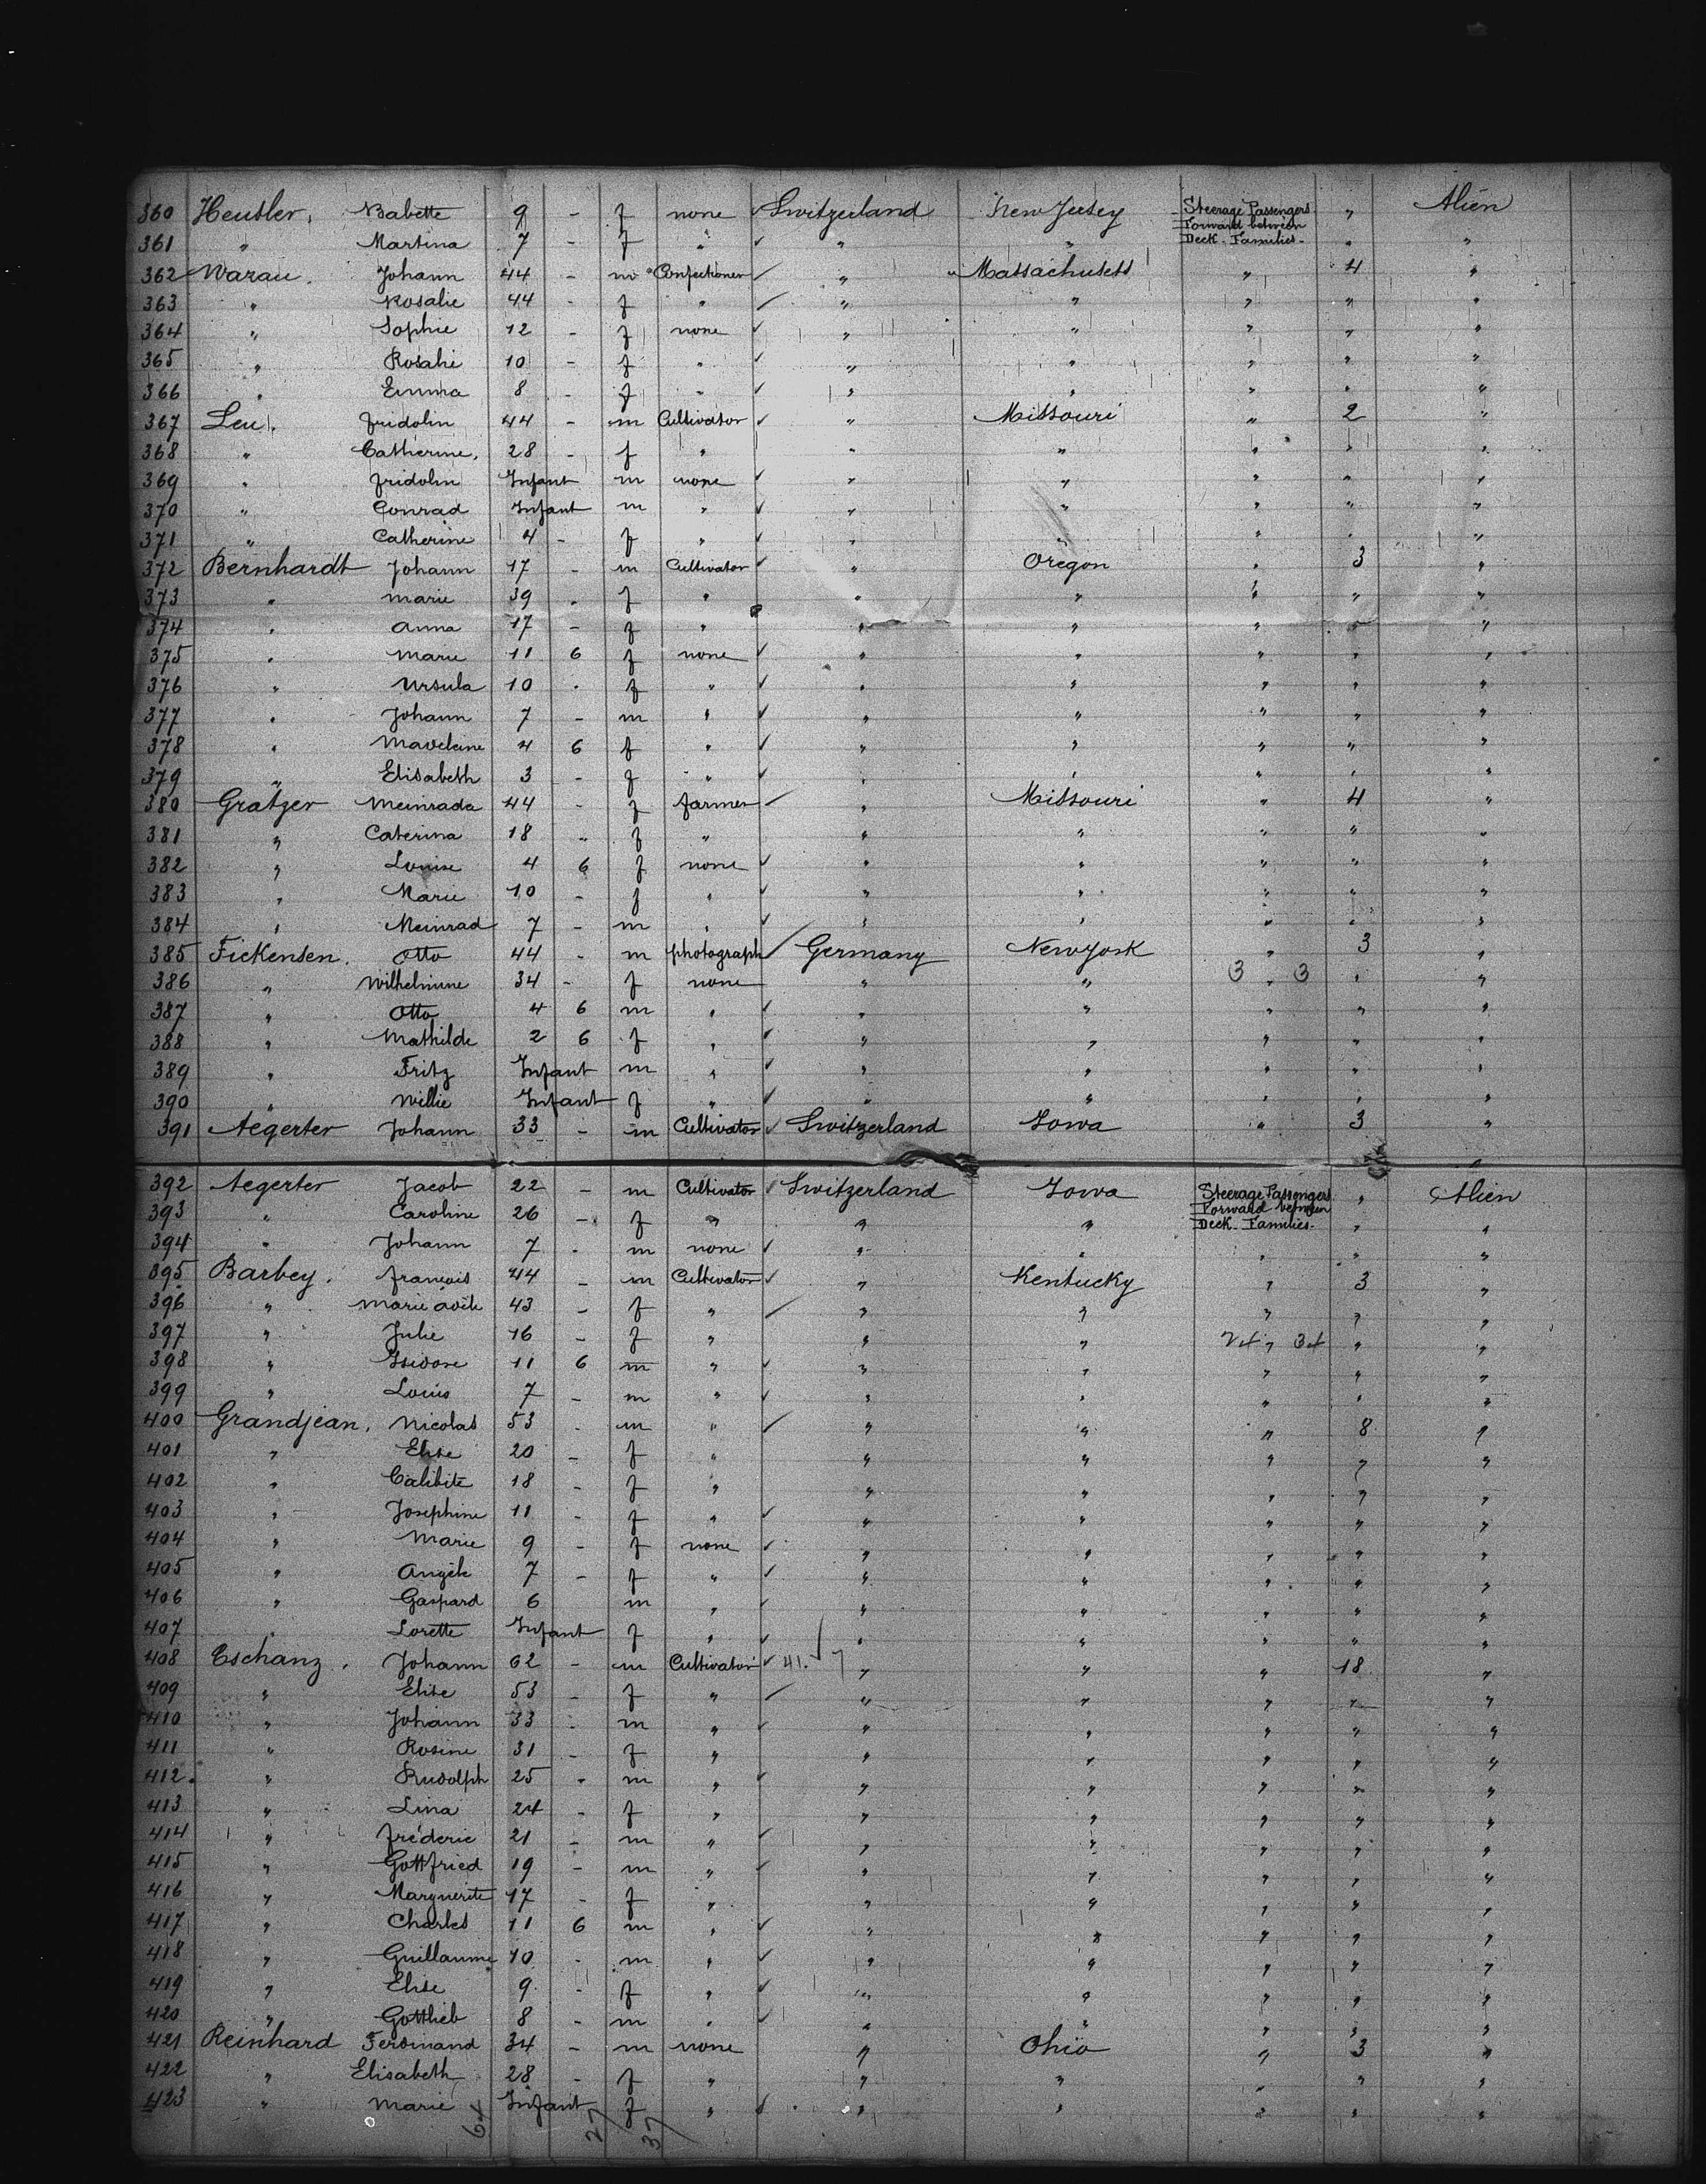 360 Heusler, Babette 9 - f none ✓ Switzerland New Jersey Steerage Passengers Forward between Deck - Families - " Alien
361 " Martina 7 - f " ✓ " " " "
362 Warau. Johann 44 - m Confectioner ✓ " Massachusets " 4 "
363 " Rosalie 44 - f " ✓ " " " " "
364 " Sophie 12 - f none ✓ " " " " "
365 " Rosalie 10 - f " ✓ " " " " "
366 " Emma 8 - f " ✓ " " " " "
367 Leu. Fridolin 44 - m Cultivator ✓ " Missouri " 2 "
368 " Catherine, 28 - f " " " " " "
369 " Fridolin Infant m none ✓ " " " " "
370 " Conrad Infant m " ✓ " " " " "
371 " Catherine 4 - f " ✓ " " " " "
372 Bernhardt Johann 17 - m Cultivator ✓ " Oregon " 3 "
373 " Marie 39 - f " " " " " "
374 " Anna 17 - f " " " " " "
375 " Marie 11 6 f none ✓ " " " " "
376 " Ursula 10 - f " ✓ " " " " "
377 " Johann 7 - m " ✓ " " " " "
378 " Maveleine 4 6 f " ✓ " " " " "
379 " Elisabeth 3 - f " ✓ " " " " "
380 Gratzer Meinrada 44 - f farmer ✓ " Missouri " 4 "
381 " Caterina 18 - f " " " " " "
382 " Louise 4 6 f none ✓ " " " " "
383 " Marie 10 - f " ✓ " " " " "
384 " Meinrad 7 - m " ✓ " " " " "
385 Fickensen. Otto 44 - m photograph ✓ Germany New York " 3 "
386 " Wilhelmine 34 - f none " " 3 " 3 " "
387 " Otto 4 6 m " ✓ " " " " "
388 " Mathilde 2 6 f " ✓ " " " " "
389 " Fritz Infant m " ✓ " " " " "
390 " Willie Infant f " ✓ " " " " "
391 Aegerter Johann 33 - m Cultivator ✓ Switzerland Iowa " 3 "
392 Aegerter Jacob 22 - m Cultivator ✓ Switzerland Iowa Steerage Passengers Forward between Deck - Families - " Alien
393 " Caroline 26 - f " " " " "
394 " Johann 7 - m none ✓ " " " " "
395 Barbey. François 44 - m Cultivator ✓ " Kentucky " 3 "
396 " Marie 43 - f " ✓ " " " " "
397 " Julie 16 - f " " " 24 " 34 " "
398 " Isidore 11 6 m " ✓ " " " " "
399 " Louis 7 - m " ✓ " " " " "
400 Grandjean, Nicolas 53 - m " ✓ " " " 8 "
401 " Elise 20 - f " " " " " "
402 " Calibite 18 - f " " " " " "
403 " Josephine 11 - f " ✓ " " " " "
404 " Marie 9 - f none ✓ " " " " "
405 " Angèle 7 - f " ✓ " " " " "
406 " Gaspard 6 m " ✓ " " " " "
407 " Lorette Infant f " ✓ " " " " "
408 Eschanz. Johann 62 - m Cultivator ✓ 41. ✓ " " " 18 "
409 " Elise 53 - f " ✓ " " " " "
410 " Johann 33 - m " ✓ " " " " "
411 " Rosine 31 - f " " " " " "
412. " Rudolph 25 - m " ✓ " " " " "
413 " Lina 24 - f " " " " " "
414 " Fréderic 21 - m " ✓ " " " " "
415 " Gottfried 19 - m " ✓ " " " " "
416 " Marguerite 17 - f " " " " " "
417 " Charles 11 6 m " ✓ " " " " "
418 " Guillaume 10 - m " ✓ " " " " "
419 " Elise 9 - f " ✓ " " " " "
420 " Gottlieb 8 - m " ✓ " " " " "
421 Reinhard Ferdinand 34 - m none " Ohio " 3 "
422 " Elisabeth 28 - f " " " " " "
423 " Marie Infant f " ✓ " " " " "
64 27 37